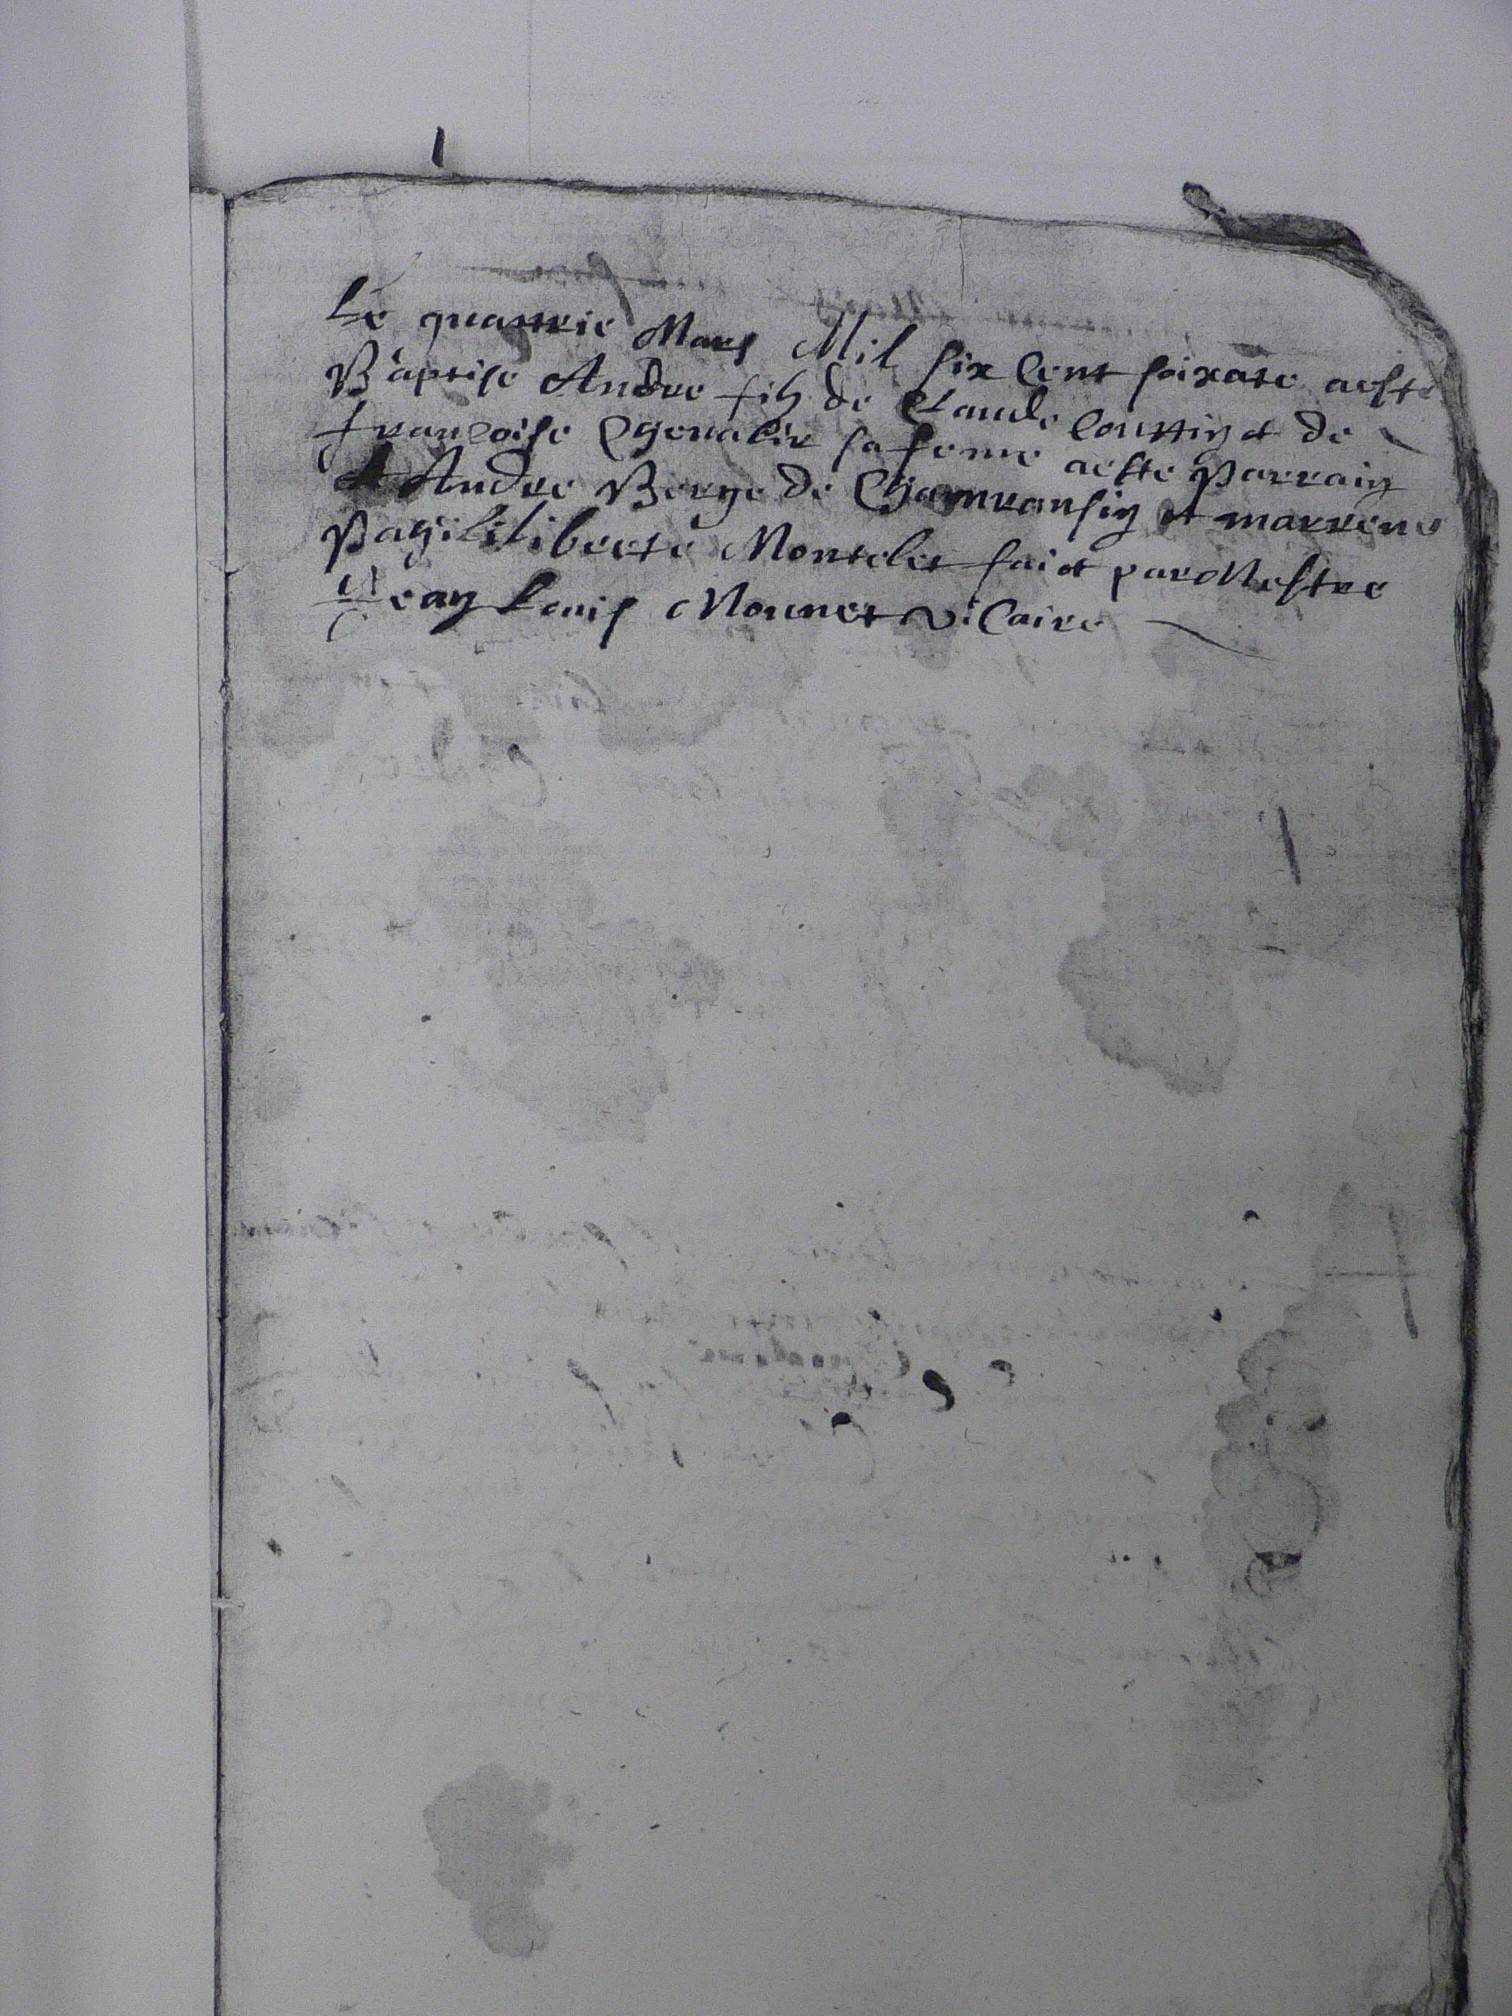 Le quattrie Mars Mil six Cent soixate aeste
Baptise Andre fils de Claude Couttin et de
francoise Chevalir sa feme aeste Parrain
Andre Berge de Chamransin et marrene
Montelet faict par Mestre
Jean Louis Monnet vicaire